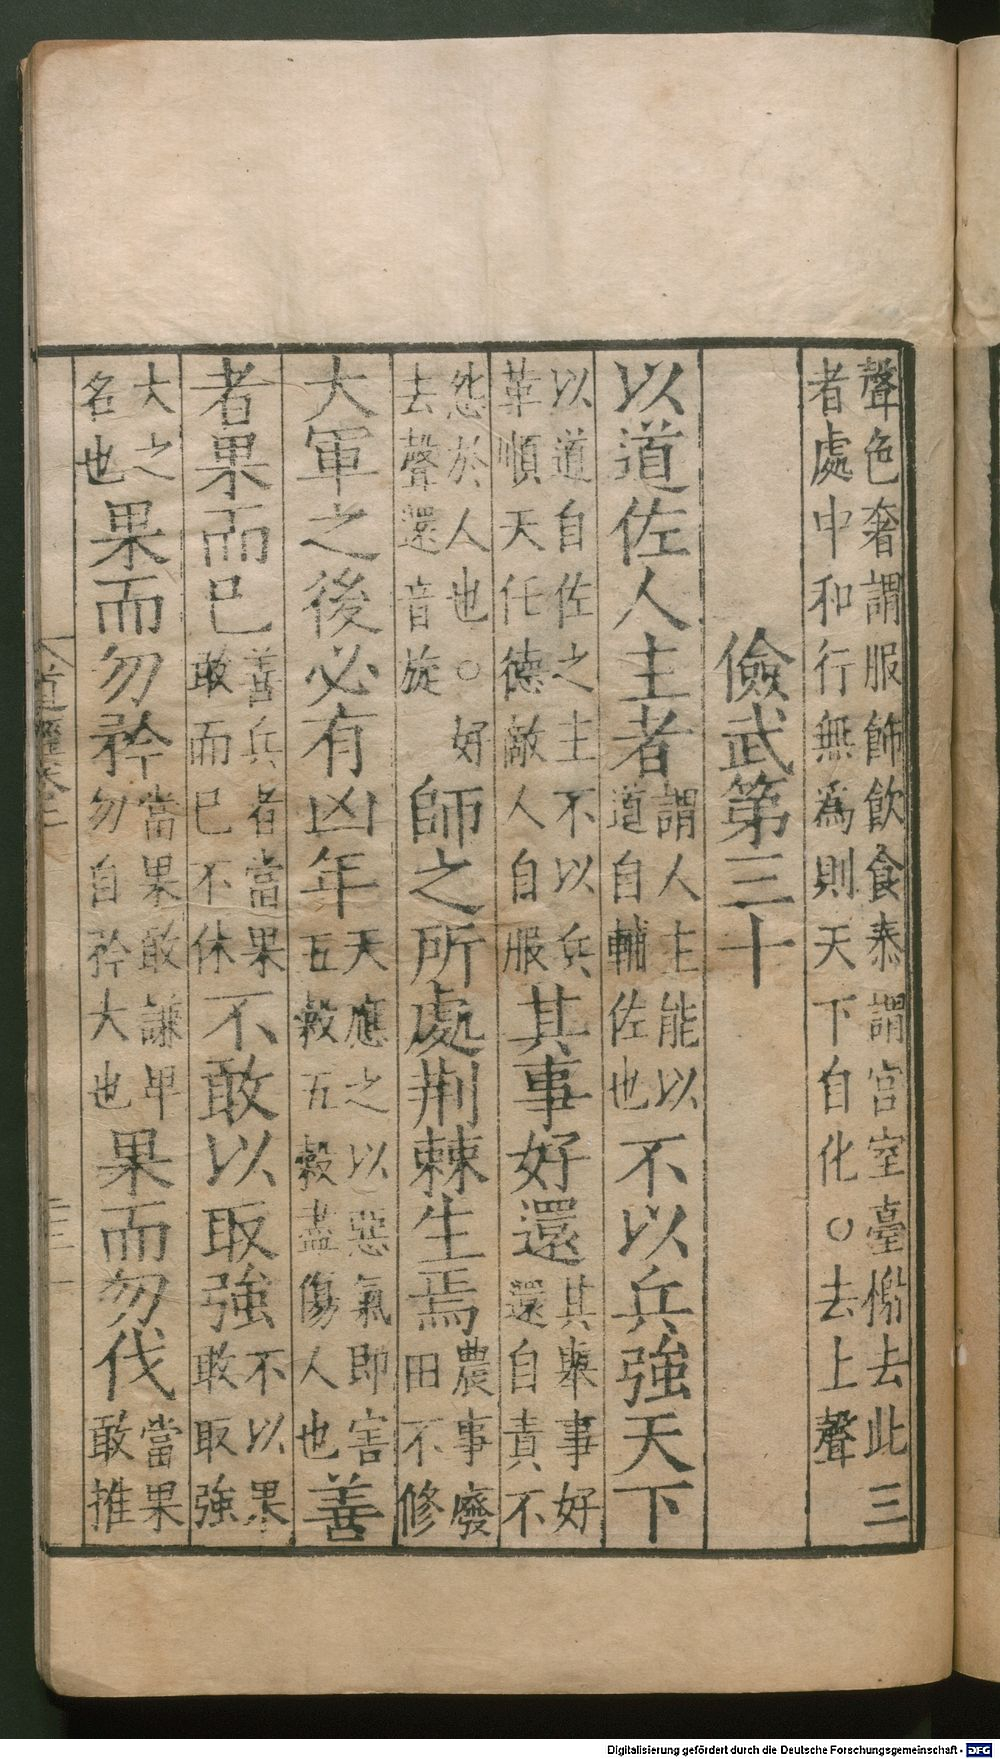 聲色奢謂服飾飲食泰謂宮室臺榭去此三
者處中和行無為則天下自化○去上聲
儉武第三十
以道佐人主者謂人主能以
道自輔佐也不以兵強天下
以道自佐之主不以兵
革順天任德敵人自服其事好還其舉事好
還自責不
怨於人也○好
去聲還音旋師之所處荆棘生焉農事廢
田不修
大軍之後必有凶年天應之以惡氣即害
五穀五穀盡傷人也善
者果而已善兵者當果
敢而已不休不敢以取強不以果
敢取強
大之
名也果而勿矜當果敢謙卑
勿自矜大也果而勿伐當果
敢推
道經卷上
Digitalisierung gefördert durch die Deutsche Forschungsgemeinschaft - DFG